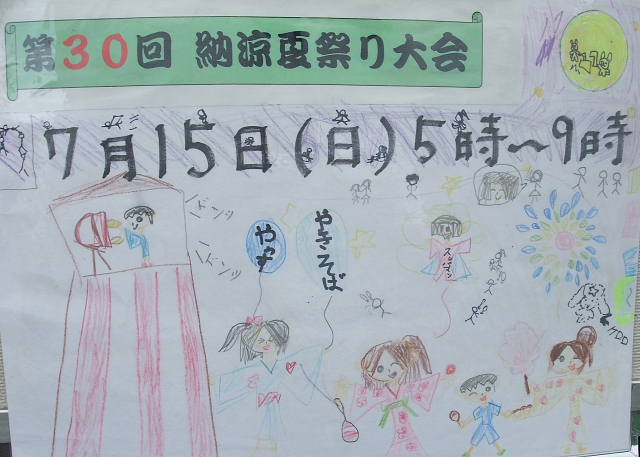 第30回 納涼夏祭り大会
7月15日(日)5時～9時
ドンッ
ドンッ
やきそば